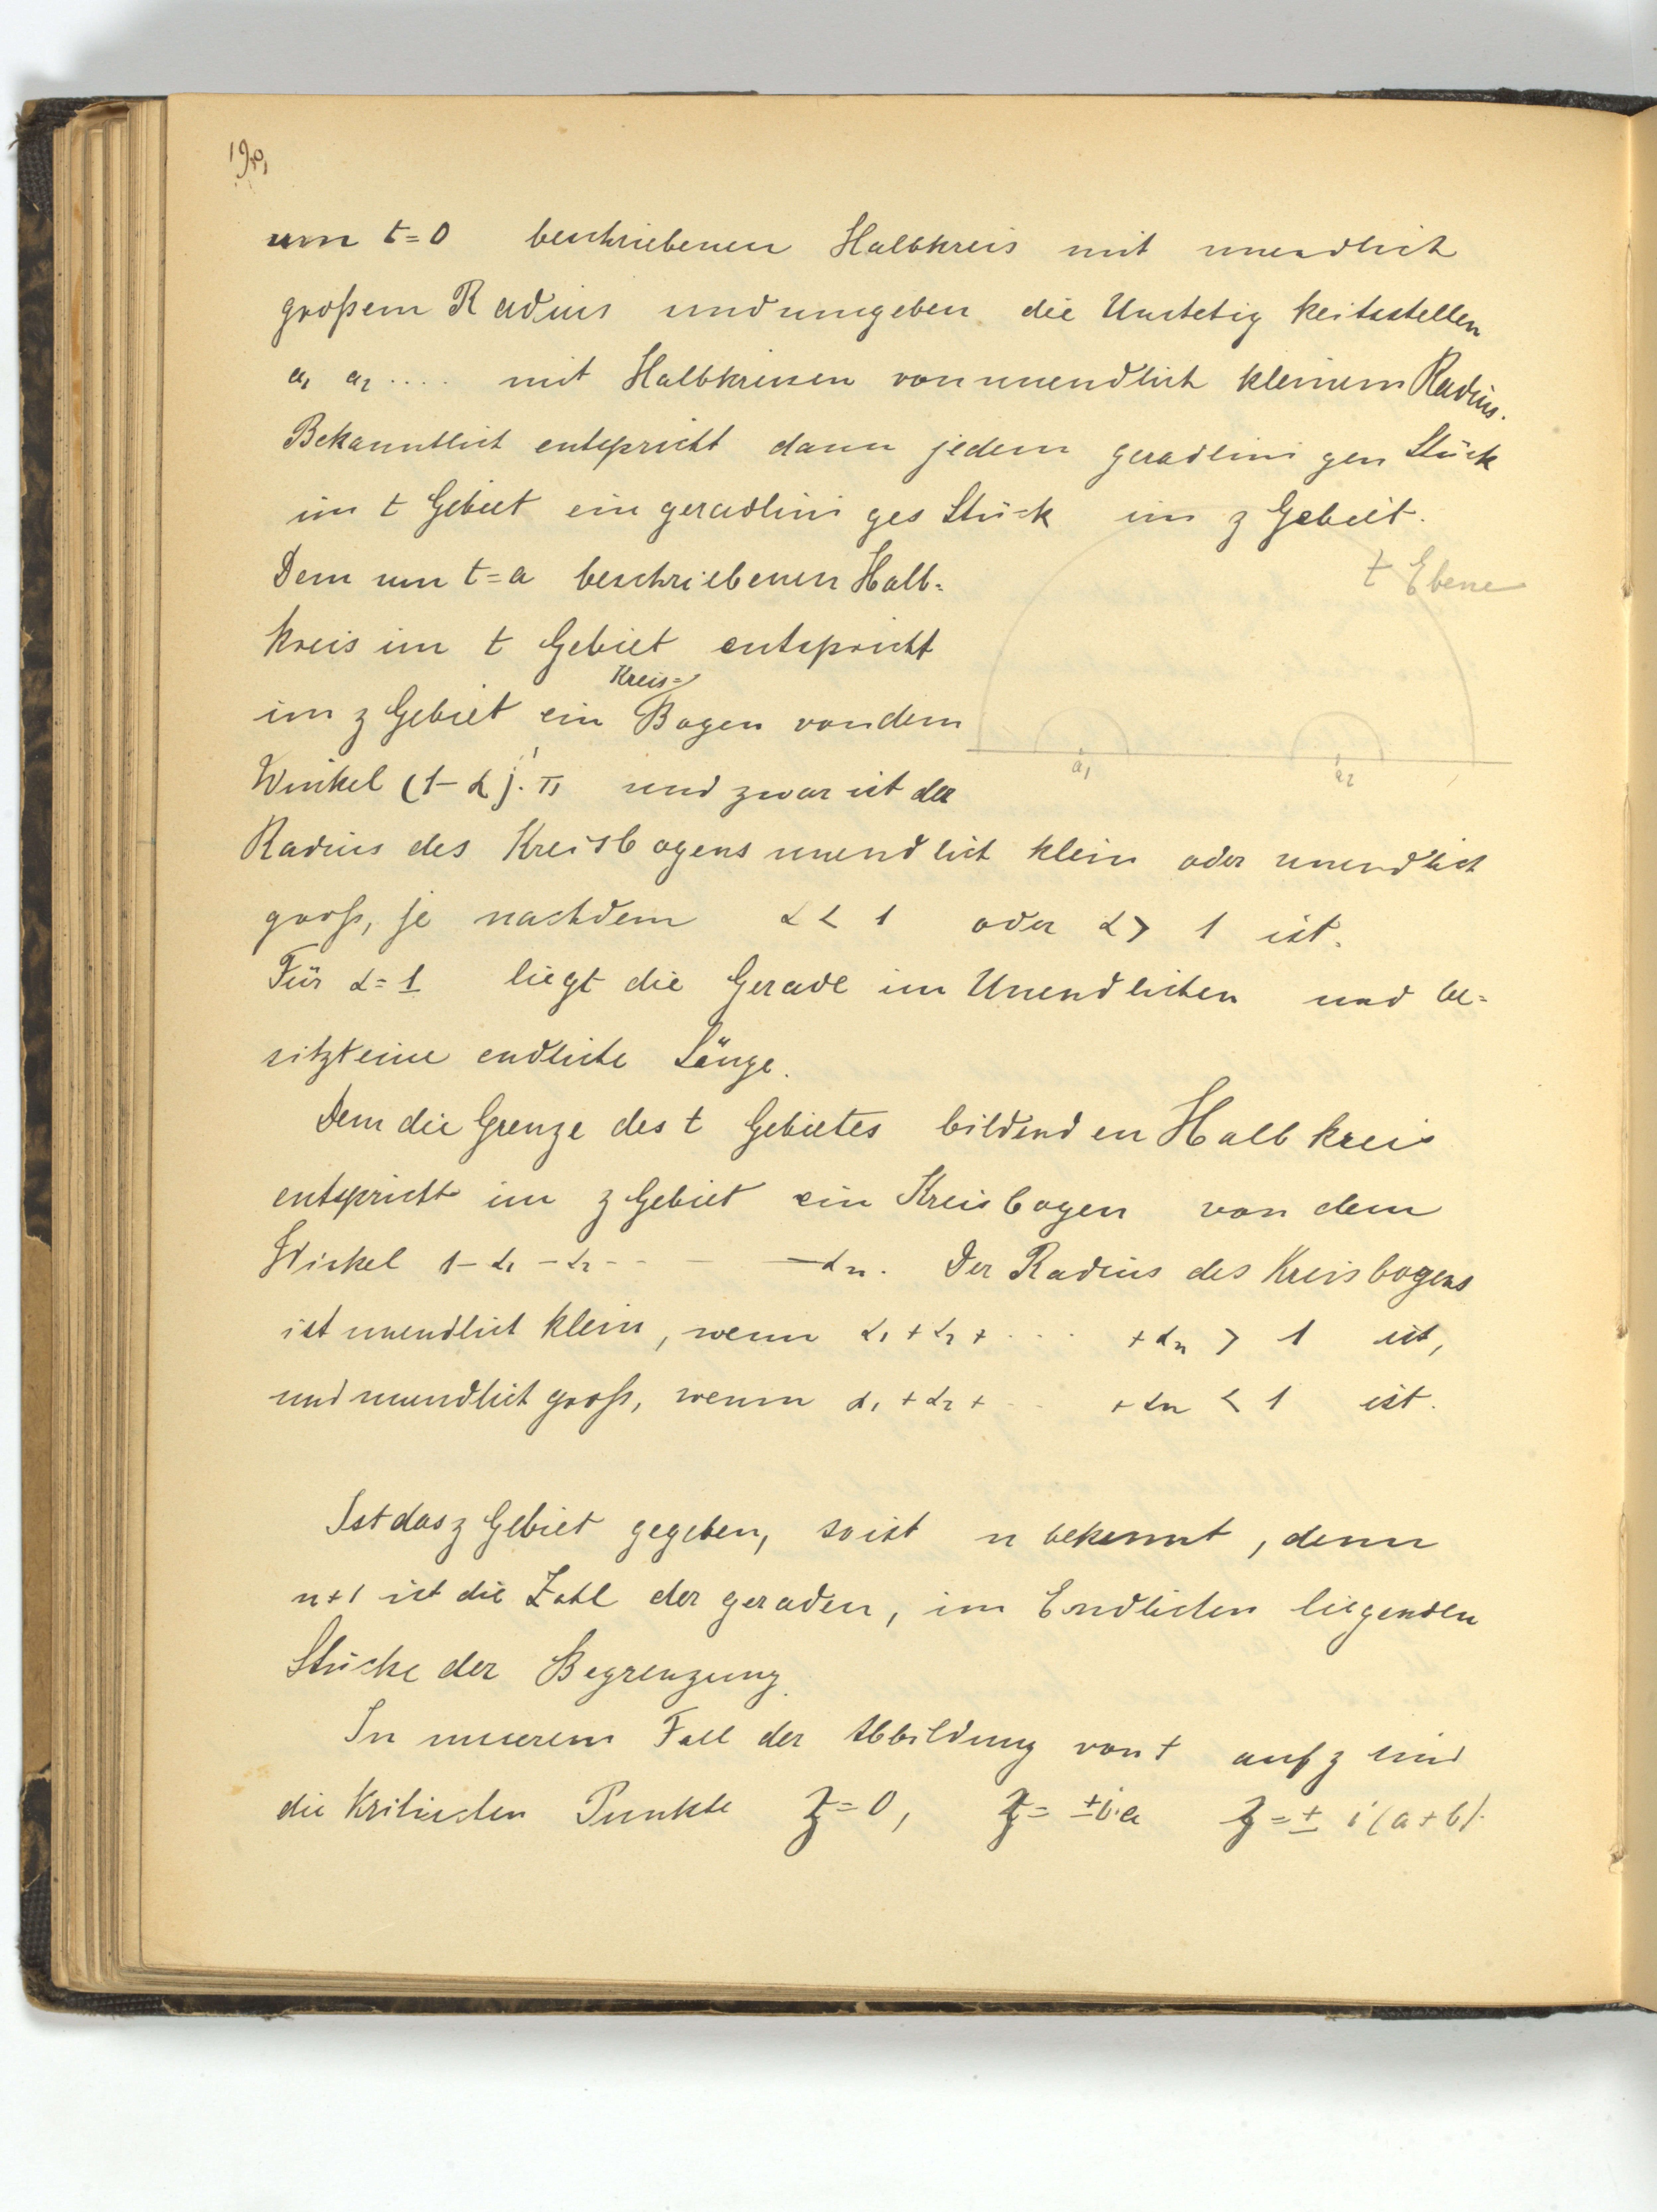 um t=0 beschriebenen Halbkreis mit unendlich
großem Radius und umgeben die Unstetigkeitsstellen
a₁ a₂ .... mit Halbkreisen von unendlich kleinem Radius.
Bekanntlich entspricht dann jedem geradlinigen Stück
im t Gebiet ein geradliniges Stück im z Gebiet.
t Ebene
Dem um t=a beschriebenen Halb=
kreis im t Gebiet entspricht
Kreis=
im z Gebiet ein Bogen von dem
Winkel (1-α)·π und zwar ist der
a₁ a₂
Radius des Kreisbogens unendlich klein oder unendlich
groß, je nachdem α < 1 oder α > 1 ist.
Für α=1 liegt die Gerade im Unendlichen und be=
sitzt eine endliche Länge.
Dem die Grenze des t Gebietes bildenden Halbkreis
entspricht im z Gebiet ein Kreisbogen von dem
Winkel 1-α₁-α₂-- - -αₙ. Der Radius des Kreisbogens
ist unendlich klein, wenn α₁+α₂+.... +αₙ > 1 ist,
und unendlich groß, wenn α₁+α₂+.. +αₙ < 1 ist.
Ist das z Gebiet gegeben, so ist n bekannt, denn
n+1 ist die Zahl der geraden, im Endlichen liegenden
Stücke der Begrenzung.
In unserem Fall der Abbildung von t auf z sind
die Kritischen Punkte z=0, z=±i·a z=± i(a+b).